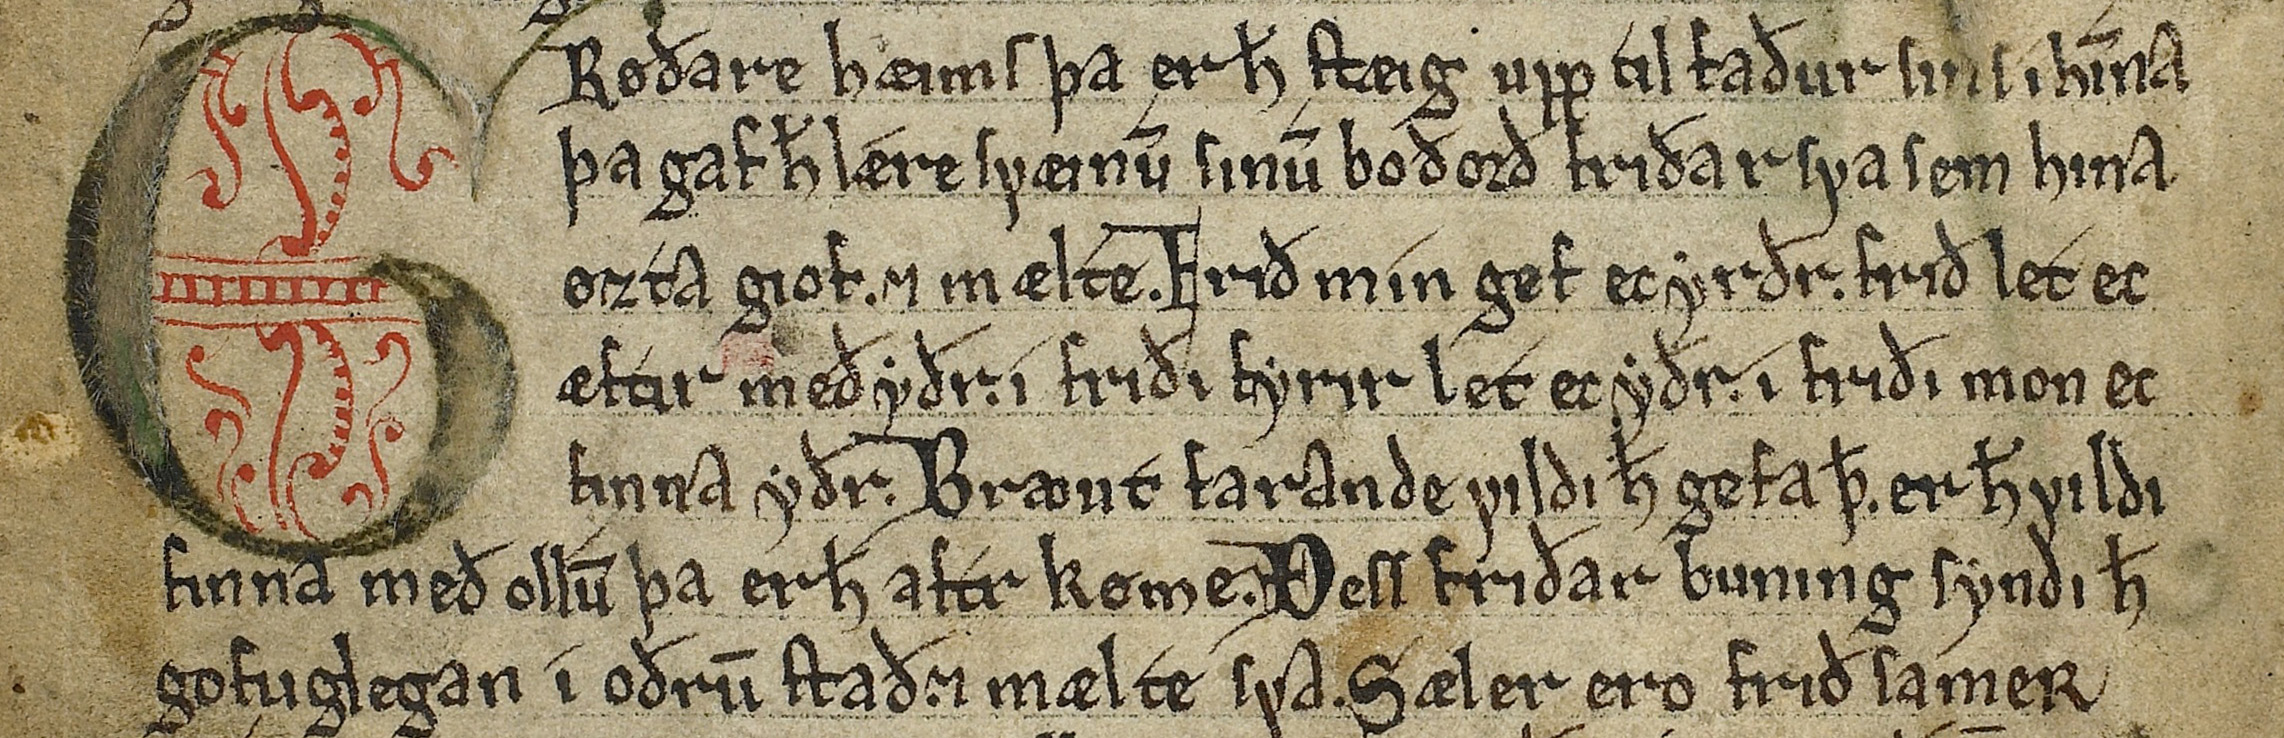 GRøðare hæims þa er h̅ stæig upp til faður sins i hı̅na
þa gaf h̅ lære ſꝩæinu̅ sinu̅ boðorð friðar sꝩa sem hina
øꝛta giof. ⁊ mælte. Frið min gef ec yrðr. frið let ec
æftir með yðr. i friði fyrir let ec yðr. i friði mon ec
finna yðr. Brøut farande ꝩildi h̅ gefa þ̅. er h̅ ꝩildi
finna með ollu̅ þa er h̅ aftr køme. Þess friðar buning syndi h̅
gofuglegan i oðru̅ stað. ⁊ mælte sꝩa. Sæler ero friðsameʀ